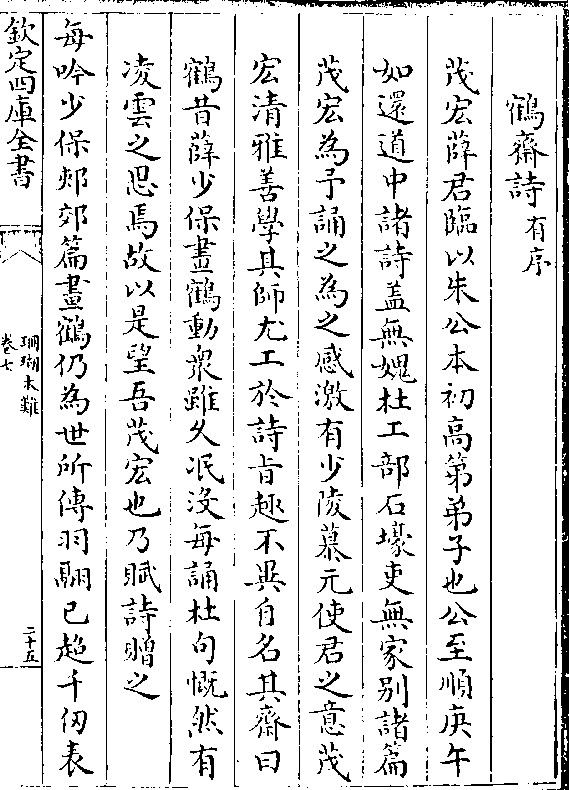 鶴齋詩有序
茂宏薛君臨以朱公本初高第弟子也公至順庚午
如還道中諸詩盖無媿杜工部石壕吏無家别諸篇
茂宏為予誦之為之感激有少陵慕元使君之意茂
宏清雅善學其師尤工於詩旨趣不異自名其齋曰
鶴昔薛少保畫鶴動衆雖久冺沒每誦杜句慨然有
凌雲之思焉故以是望吾茂宏也乃賦詩贈之
每吟少保郟郊篇畫鶴仍為世所傳羽翮已超千仞表
欽定四庫全書
珊瑚木難
卷七
二十五